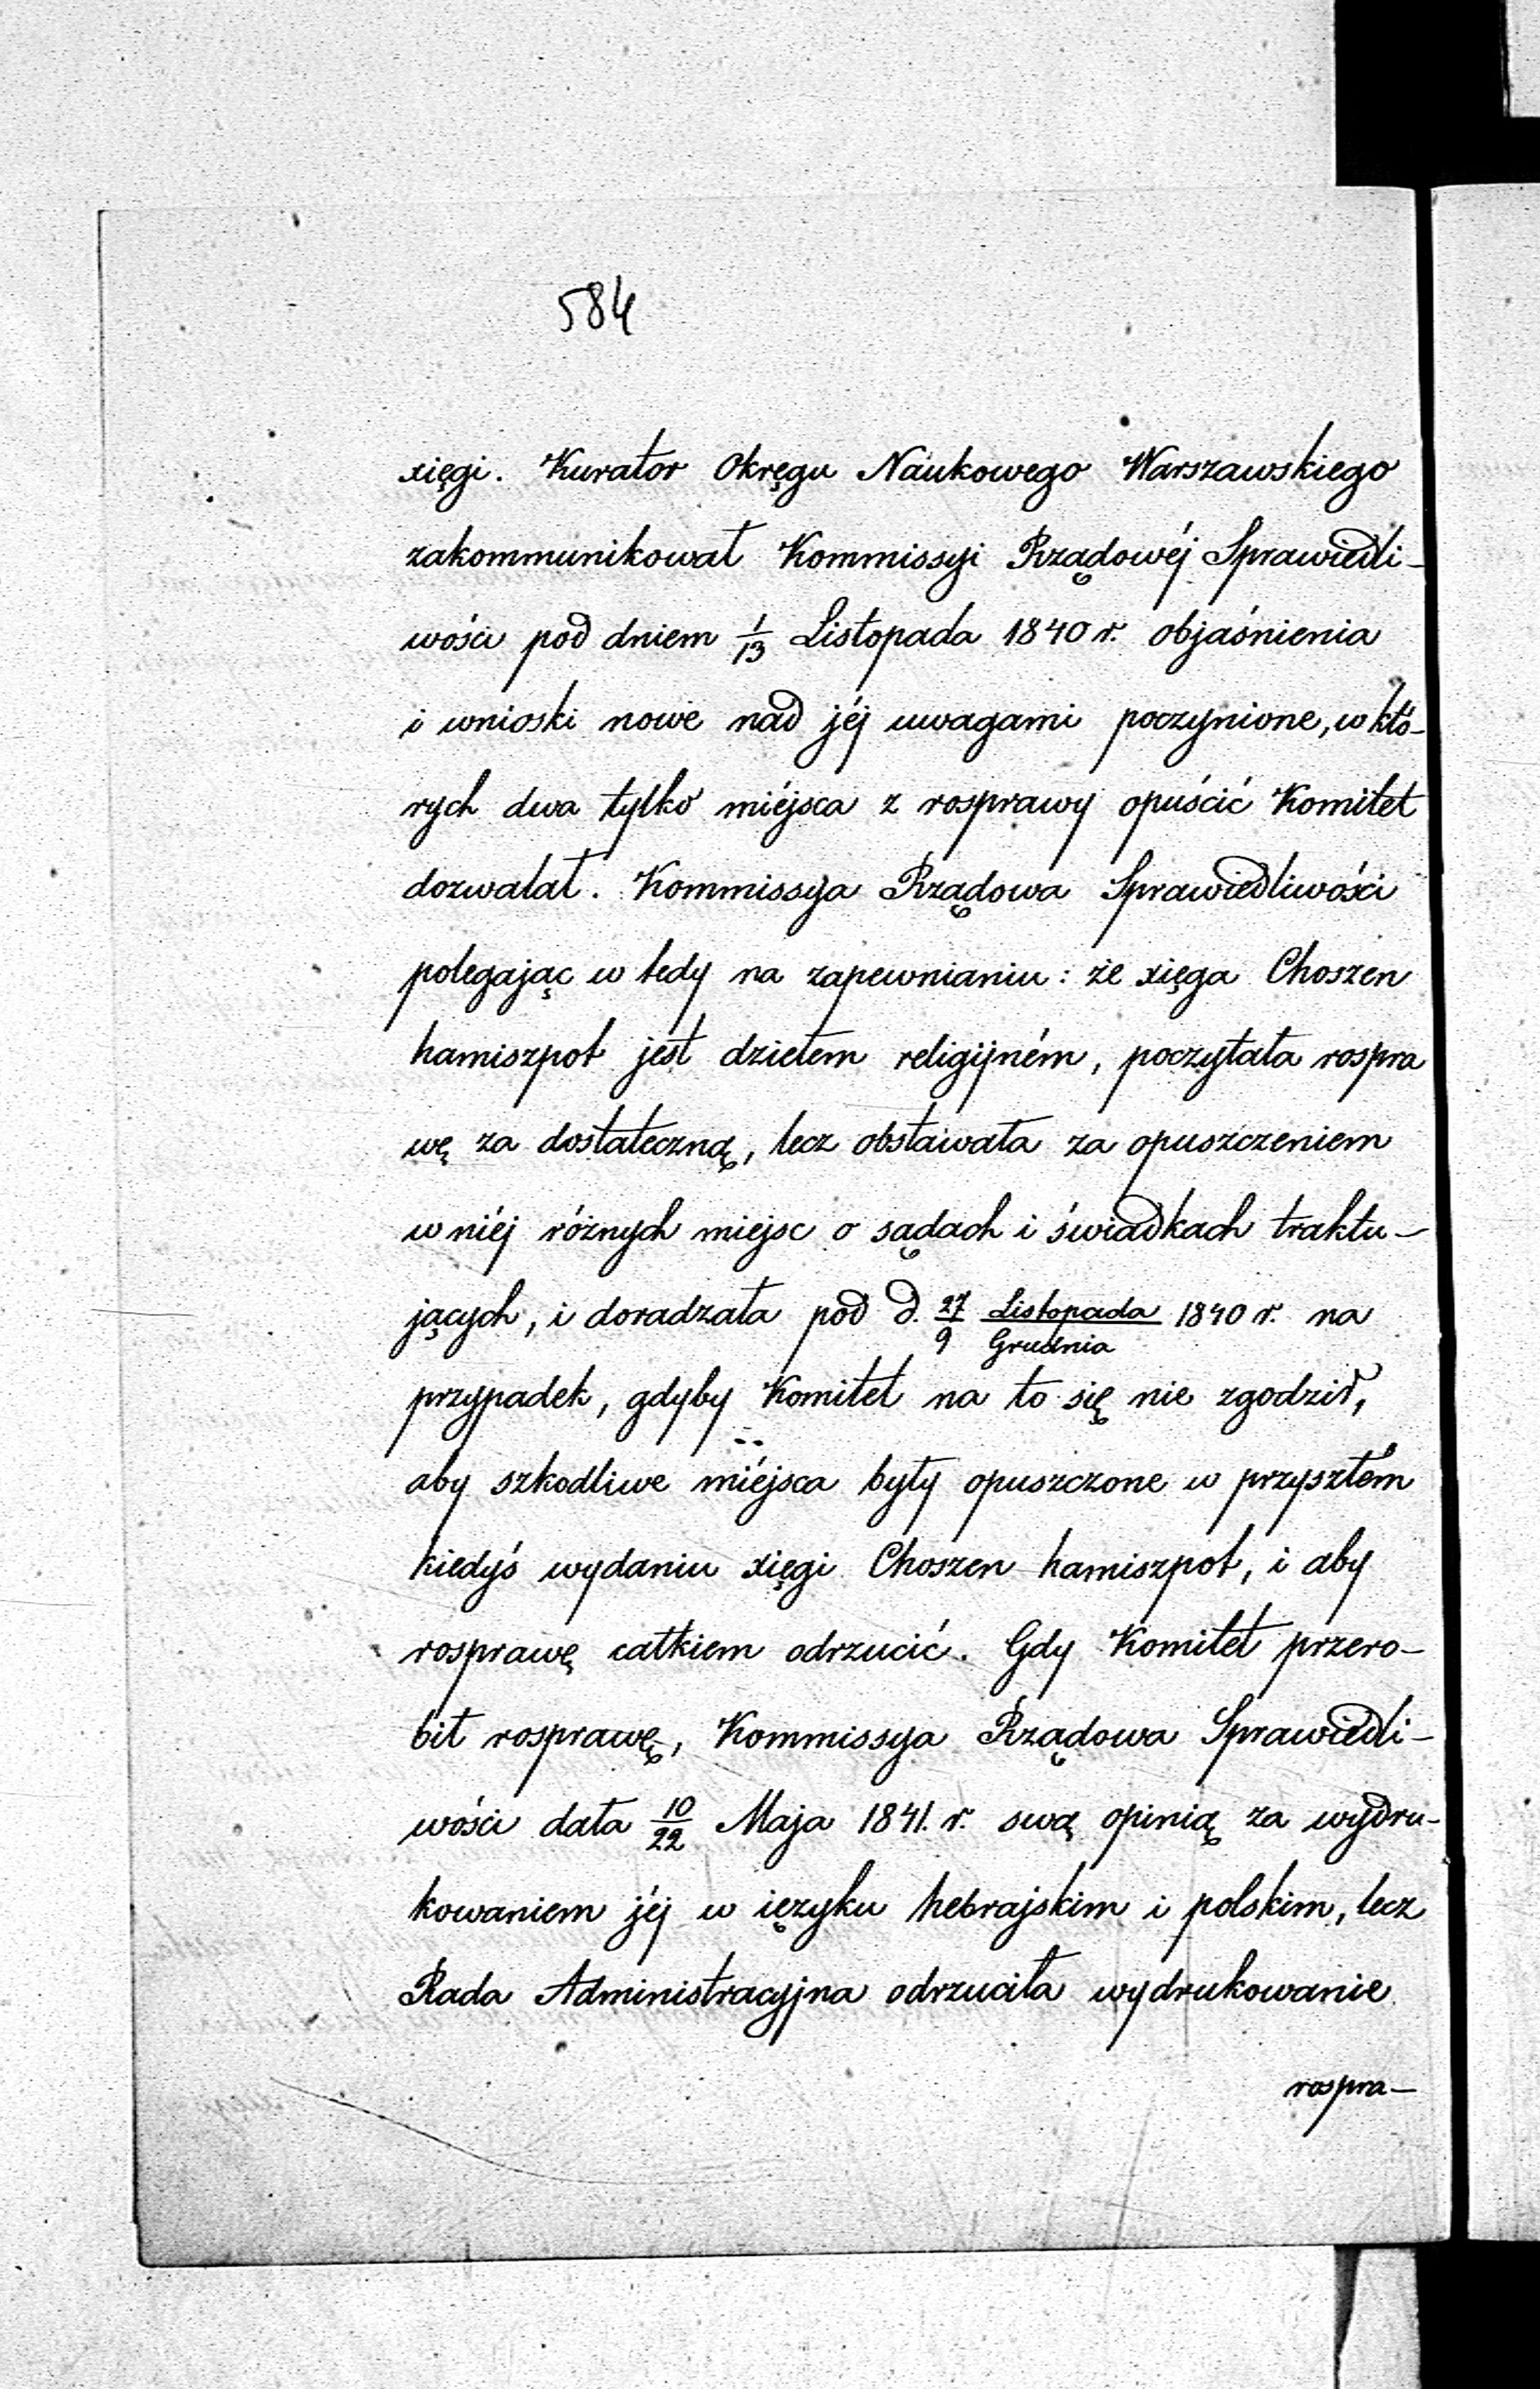 584
xięgi. Kurator Okręgu Naukowego Warszawskiego
zakommunikował Kommissyi Rządowéj Sprawiedli-
wości pod dniem 1/13 Listopada 1840 r. objaśnienia
i wnioski nowe nad jéj uwagami poczynione, w któ-
rych dwa tylko miéjsca z rosprawy opuścić Komitet
dozwalał. Kommissya Rządowa Sprawiedliwości
polegając w tedy na zapewnianiu: że xięga Choszen
hamiszpot jest dziełem religijném, poczytała rospra
wę za dostateczną, lecz obstawała za opuszczeniem
w niéj różnych miejsc o sądach i świadkach traktu-
jących, i doradzała pod d. 27/9 Listopada/Grudnia 1840 r. na
przypadek, gdyby Komitet na to się nie zgodził,
aby szkodliwe miéjsca były opuszczone w przyszłém
kiedyś wydaniu xięgi Choszen hamiszpot, i aby
rosprawę całkiem odrzucić. Gdy Komitet przero-
bił rosprawę, Kommissya Rządowa Sprawiedli-
wości dała 10/22 Maja 1841. r. swą opinią za wydru-
kowaniem jéj w ięzyku hebrajskim i polskim, lecz
Rada Administracyjna odrzuciła wydrukowanie
rospra-